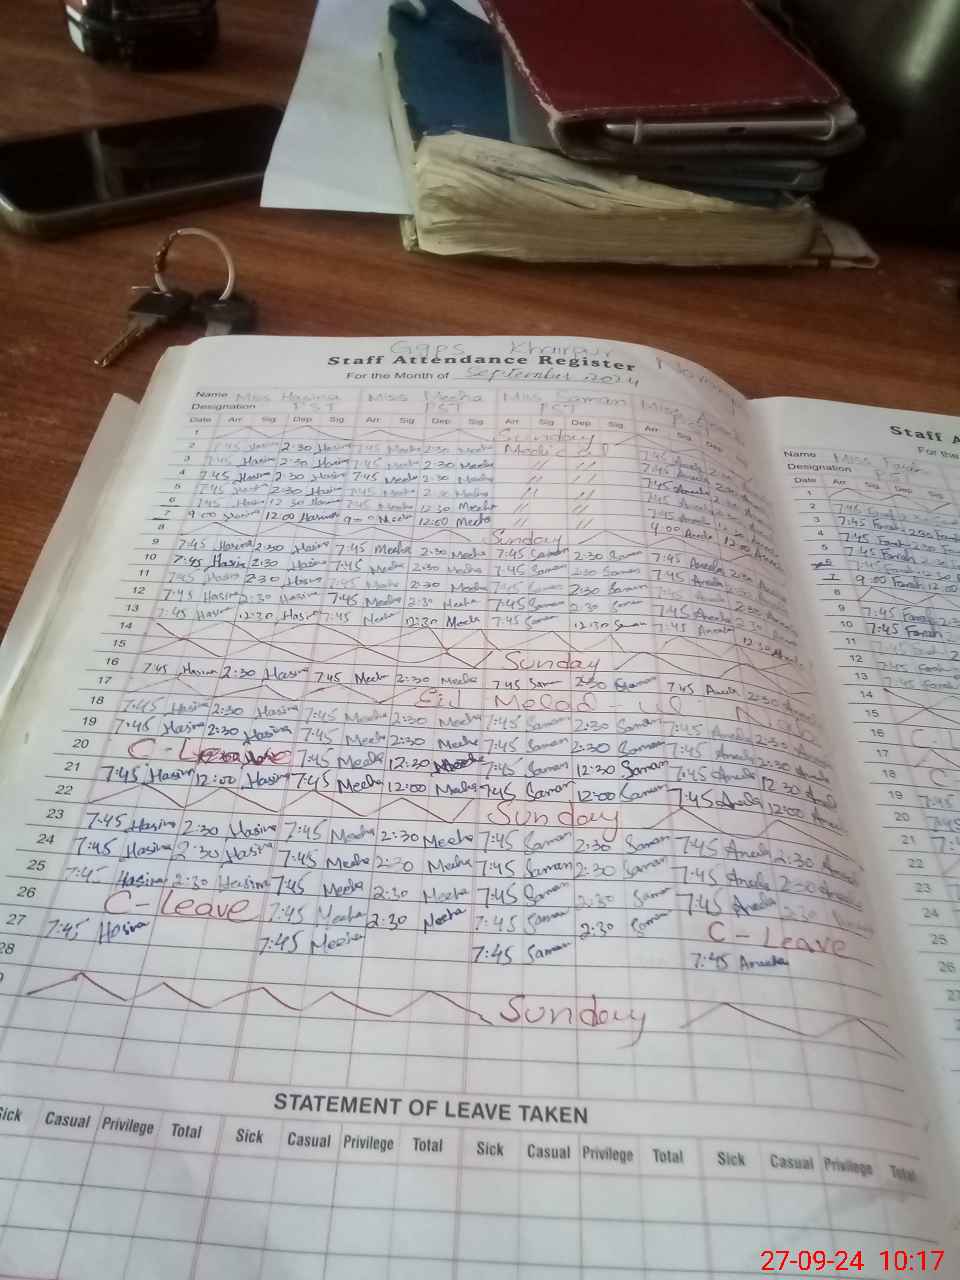 Ggps Khairpur
Staff Attendance Register
For the Month of September 2024
Name Miss Hasina Miss Meeha Miss Saman Miss
Designation PST PST PST
Date Arr Sig Dep Sig Arr Sig Dep Sig Arr Sig Dep Sig Arr Sig Dep
1 Sunday
2 7:45 Hasina 2:30 Hasina 7:45 Meeha 2:30 Meeha Medical 7:45 Aneela 2:30
3 7:45 Hasina 2:30 Hasina 7:45 Meeha 2:30 Meeha // // 7:45 Aneela 2:30
4 7:45 Hasina 2:30 Hasina 7:45 Meeha 2:30 Meeha // // 7:45 Aneela 2:30
5 7:45 Hasina 2:30 Hasina 7:45 Meeha 2:30 Meeha // // 7:45 Aneela 2:30
6 7:45 Hasina 12:30 Hasina 7:45 Meeha 12:30 Meeha // // 7:45 Aneela 12:30
7 9:00 Hasina 12:00 Hasina 9:00 Meeha 12:00 Meeha // // 9:00 Aneela 12:00 Aneela
8 Sunday
9 7:45 Hasina 2:30 Hasina 7:45 Meeha 2:30 Meeha 7:45 Saman 2:30 Saman 7:45 Aneela 2:30 Aneela
10 7:45 Hasina 2:30 Hasina 7:45 Meeha 2:30 Meeha 7:45 Saman 2:30 Saman 7:45 Aneela 2:30 Aneela
11 7:45 Hasina 2:30 Hasina 7:45 Meeha 2:30 Meeha 7:45 Saman 2:30 Saman 7:45 Aneela 2:30 Aneela
12 7:45 Hasina 2:30 Hasina 7:45 Meeha 2:30 Meeha 7:45 Saman 2:30 Saman 7:45 Aneela 2:30 Aneela
13 7:45 Hasina 12:30 Hasina 7:45 Meeha 12:30 Meeha 7:45 Saman 12:30 Saman 7:45 Aneela 12:30 Aneela
14
15 Sunday
16 7:45 Hasina 2:30 Hasina 7:45 Meeha 2:30 Meeha 7:45 Saman 2:30 Saman 7:45 Aneela 2:30 Aneela
17 Eid Melad ul Nabi
18 7:45 Hasina 2:30 Hasina 7:45 Meeha 2:30 Meeha 7:45 Saman 2:30 Saman 7:45 Aneela 2:30 Aneela
19 7:45 Hasina 2:30 Hasina 7:45 Meeha 2:30 Meeha 7:45 Saman 2:30 Saman 7:45 Aneela 2:30 Aneela
20 C-Leave 7:45 Meeha 12:30 Meeha 7:45 Saman 12:30 Saman 7:45 Aneela 12:30 Aneela
21 7:45 Hasina 12:00 Hasina 7:45 Meeha 12:00 Meeha 7:45 Saman 12:00 Saman 7:45 Aneela 12:00 Aneela
22 Sunday
23 7:45 Hasina 2:30 Hasina 7:45 Meeha 2:30 Meeha 7:45 Saman 2:30 Saman 7:45 Aneela 2:30 Aneela
24 7:45 Hasina 2:30 Hasina 7:45 Meeha 2:30 Meeha 7:45 Saman 2:30 Saman 7:45 Aneela 2:30 Aneela
25 7:45 Hasina 2:30 Hasina 7:45 Meeha 2:30 Meeha 7:45 Saman 2:30 Saman 7:45 Aneela 2:30
26 C-Leave 7:45 Meeha 2:30 Meeha 7:45 Saman 2:30 Saman C-Leave
27 7:45 Hasina 7:45 Meeha 7:45 Saman 7:45 Aneela
28
Sunday
STATEMENT OF LEAVE TAKEN
Sick Casual Privilege Total Sick Casual Privilege Total Sick Casual Privilege Total Sick Casual Privilege Total
Staff A
For the
Name Miss Farah
Designation
Date Arr Sig Dep Sig
1
2 7:45 Farah
3 7:45 Farah 2:30 Farah
4 7:45 Farah 2:30 Farah
5 7:45 Farah
7:45 Farah
9:00 Farah 12:00
8
9 7:45 Farah
10 7:45 Farah
11
12 7:45
13 7:45
14
15
16
17
18 C
19 7:45
20 7:45
21 7:
22
23
24
25
26
27
27-09-24 10:17